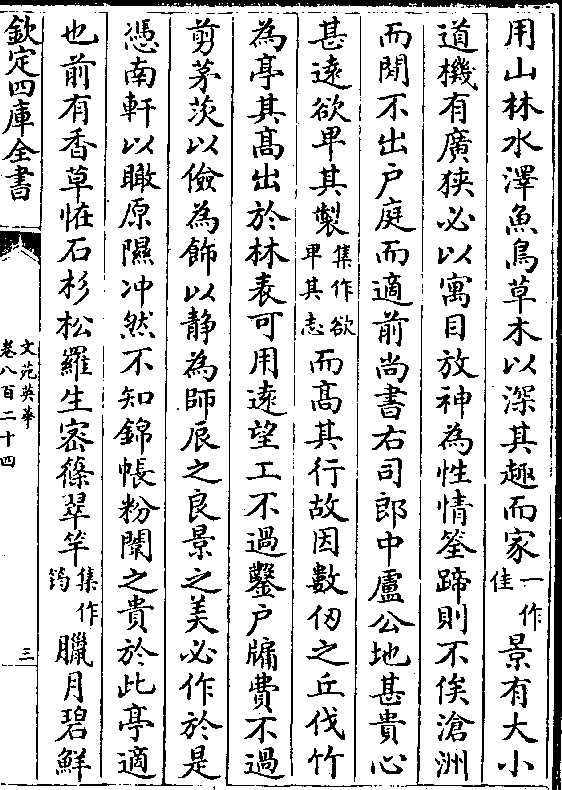 用山林水澤魚鳥草木以深其趣而家一作佳景有大小
道機有廣狹必以寓目放神為性情筌蹄則不俟滄洲
而閒不出户庭而適前尚書右司郎中盧公地甚貴心
甚遠欲卑其製集作欲卑其志而髙其行故因數仞之丘伐竹
為亭其髙出於林表可用逺望工不過鑿户牖費不過
剪茅茨以儉為飾以静為師辰之良景之美必作於是
憑南軒以瞰原隰冲然不知錦帳粉闈之貴於此亭適
也前有香草恠石杉松羅生宻篠翠竿集作筠臘月碧鮮
欽定四庫全書
文苑英華
卷八百二十四
三